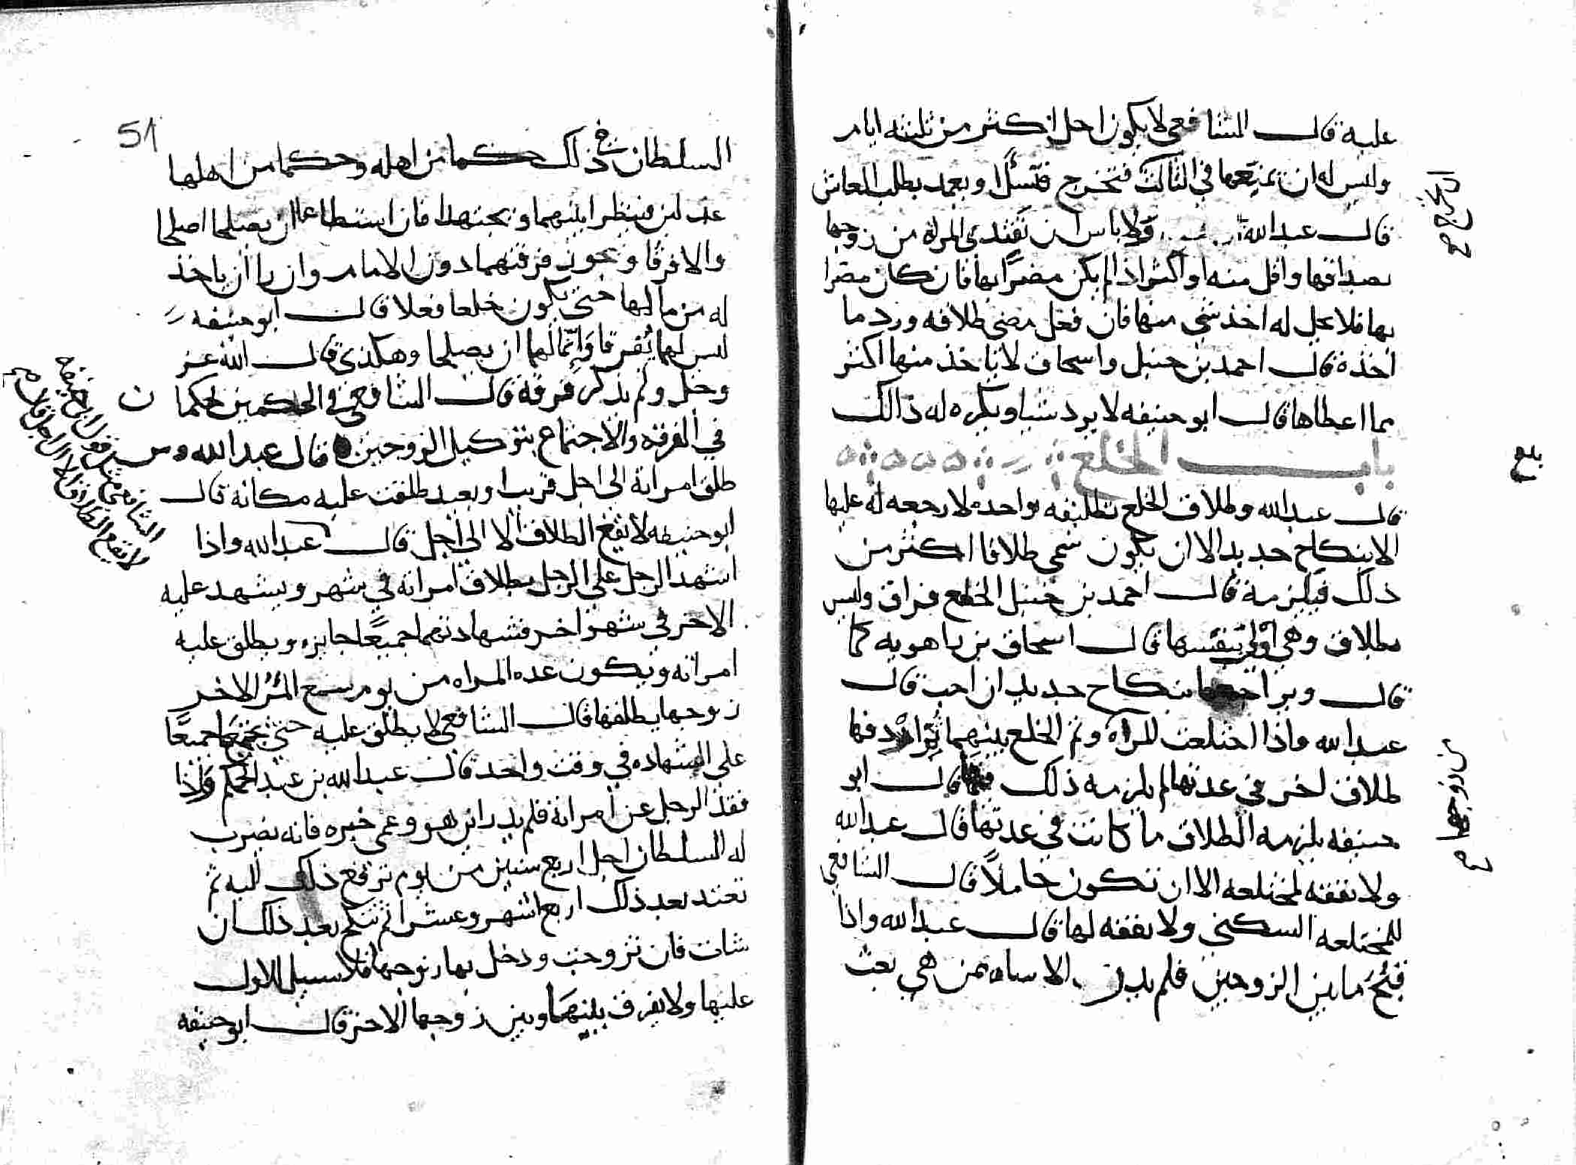 عليه قال الشافعي لا يكون اجل اكثر من ثلثه ايام
وليس له ان يمنعها في الثالث فتخرج فتسئل او يعمد بطلب المعاش
قال عبد الله ولا باس ان تفتدي المراة من زوجها
بصداقها واقل منه او اكثر اذا لم يكن مضرا بها فان كان مضرا
بها فلا يحل له اخذ شي منها فان فعل مضى طلاقه ورد ما
اخذه قال احمد بن حنبل واسحاق لا ياخذ منها اكثر
مما اعطاها قال ابو حنيفه لا يرد شيا ويكره له ذالك
باب الخلع
قال عبد الله وطلاق الخلع تطليقه بواحده لا رجعه له عليها
الا بنكاح جديد الا ان يكون سمى طلاقا اكثر من
ذلك فيلزمه قال احمد بن حنبل الخلع فراق وليس
بطلاق وهي اولى بنفسها قال اسحاق بن راهويه كما
قال ويراجعها بنكاح جديد ان احب قال
عبد الله واذا اختلعت المراة وتم الخلع بينهما ثم اردفها
طلاق اخر في عدتها لم يلزمه ذلك قال ابو
حنيفه يلزمه الطلاق ما كانت في عدتها قال عبد الله
ولا نفقه لمختلعه الا ان تكون حاملا قال الشافعي
للمختلعه السكنى ولا نفقه لها قال عبد الله واذا
قبح ما بين الزوجين فلم يدر الاساه ممن هي بعث
من زوجها
بلغ
51
السلطان في ذلك حكما من اهله وحكما من اهلها
عدلين فينظرا بينهما ويجتهدا فان استطاعا ان يصلحا اصلحا
والا فرقا ويجوز فرقتهما دون الامام وان راا ان ياخذ
له من مالها حتى يكون خلعا فعلا قال ابو حنيفه
ليس لهما يفرقا وانما لهما ان يصلحا وهكذى قال الله عز
وجل ولم يذكر فرقه قال الشافعي في الحكمين يحكما
في الفرقه والاجتماع بتوكيل الزوجين قال عبد الله ومن
طلق امراته الى اجل قريب او بعيد طلقت عليه مكانه قال
ابو حنيفه لا يقع الطلاق الا الى اجل قال عبد الله واذا
اشهد الرجل على الرجل بطلاق امراته في شهر ويشهد عليه
الاخر في شهر اخر فشهادتهما جميعا جايزه ويطلق عليه
امراته ويكون عده المراه من يوم الاخر
زوجها يطلقها قال الشافعي لا يطلق عليه حتى يجتمعا جميعا
على الشهاده في وقت واحد قال عبد الله بن عبد الحكم واذا
فقد الرجل عن امراته فلم يدر اين هو وعمي خبره فانه يضرب
له السلطان اجل اربع سنين من يوم ترفع ذلك اليه ثم
تعتد بعد ذلك اربع اشهر وعشرا ثم تنكح بعد ذلك ان
شات فان تزوجت ودخل بها زوجها فلا سبيل للاول
عليها ولا يفرق بينها وبين زوجها الاخر قال ابو حنيفه
الشافعي مثل قول ابو حنيفه
لا يقع الطلاق الا الى اجل